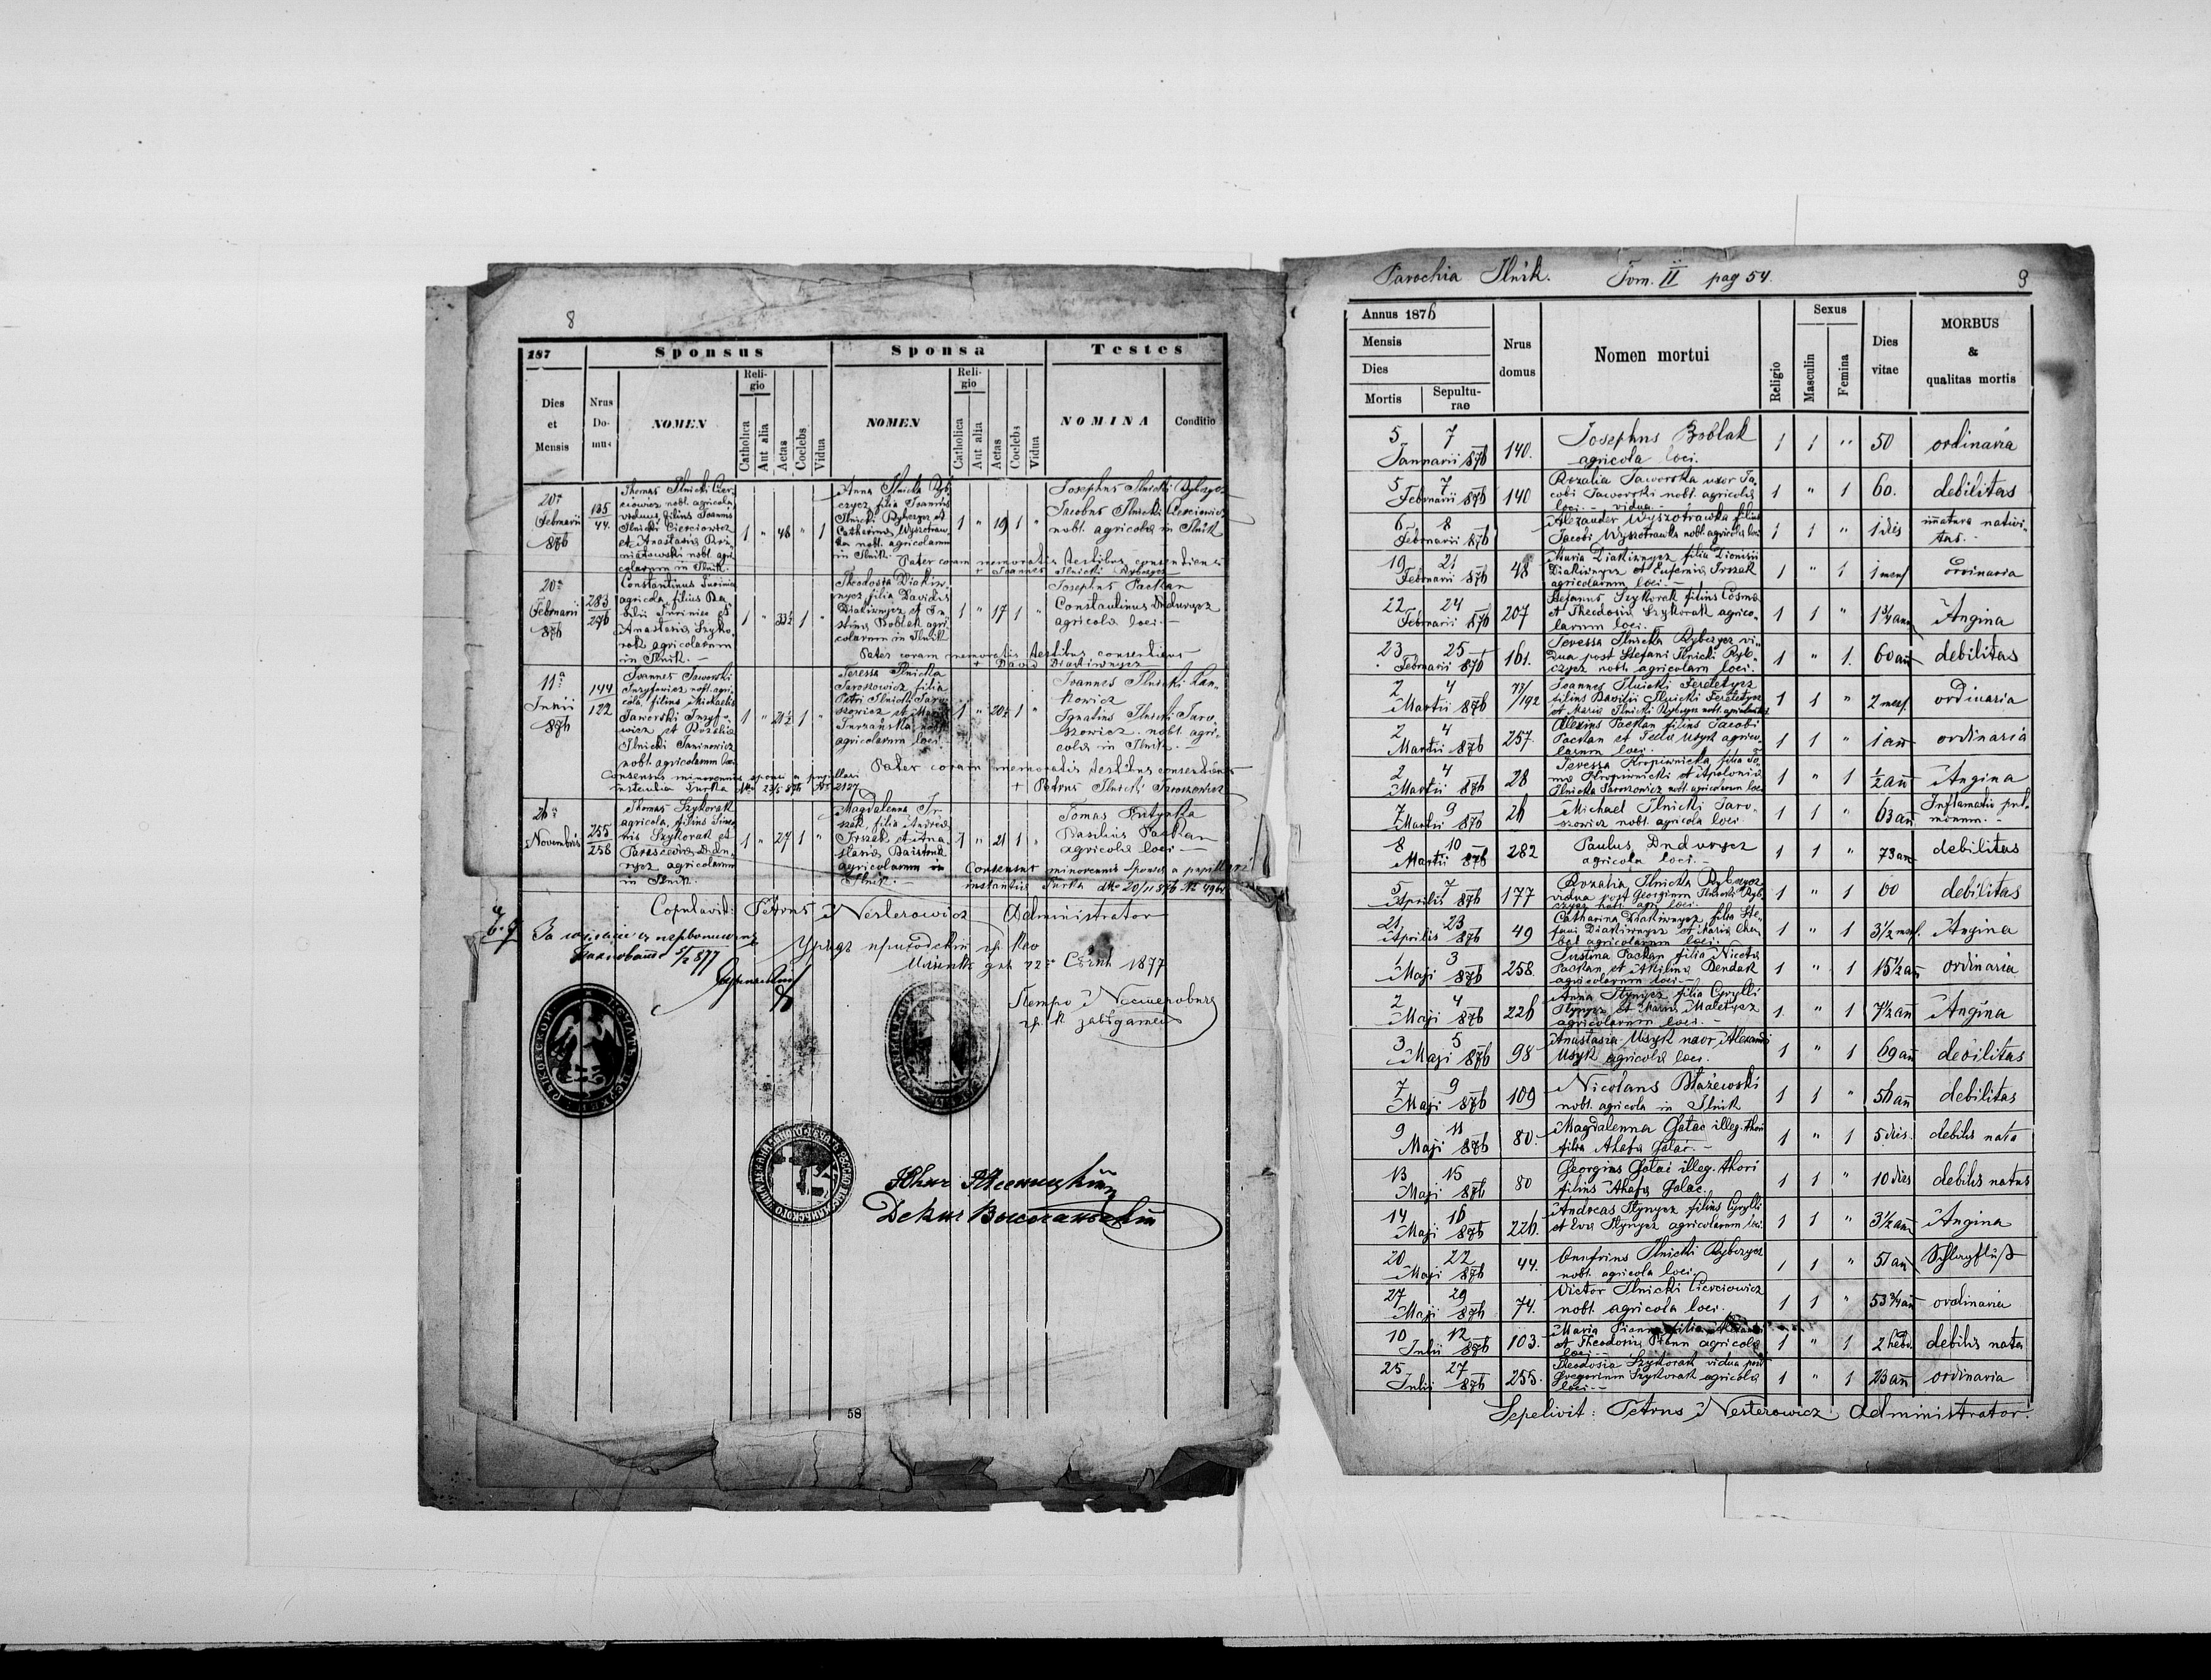 8
187
Sponsus
Sponsa
Testes
Dies et Mensis
Nrus Domus
NOMEN
Religio
Catholica
Aut alia
Aetas
Coelebs
Vidua
NOMEN
Religio
Catholica
Aut alia
Aetas
Coelebs
Vidua
NOMINA
Conditio
20a Februarii 876
135/44
Thomas Ilnicki Cier-
ciowicz nobl. agricola
viduus filius Joannis
Ilnicki Cierciowicz
et Anastasia
nobl. agri-
colarum in Ilnik.
1 " 48 " 1
Anna Ilnicka Ryb-
czycz filia Joannis
Ilnicki Rybczycz et
Catharina Wyszotraw-
ka nobl. agricolarum
in Ilnik.
1 " 19 1 "
Josephus Ilnicki Rybczycz
Jacobus Ilnicki Cierciowicz
nobl. agricolae in Ilnik
Pater coram memoratis testibus consentiens
+ Joannes Ilnicki Rybczycz
20a Februarii 876
283/276
Constantinus
agricola, filius Ba-
silii et
Anastasia Szyko-
rak agricolarum
in Ilnik. —
1 " 33½ 1 "
Theodosia Diakiw-
nycz filia Davidis
Diakiwnycz et Ju-
stina Boblak agri-
colarum in Ilnik
1 " 17 1 "
Josephus Packan
Constantinus Dndurycz
agricolae loci. —
Pater coram memoratis testibus consentiens
+ David Diakiwnycz
11a Junii 876
144
122
Joannes Jaworski
nobl. agri-
cola, filius Michaelis
Jaworski
et Rozalia
Ilnicki
nobl. agricolarum loci
1 " 21½ 1 "
Teressa Ilnicka
Jaroszowicz filia
Petri Ilnicki Jaro-
szowicz et Maria
Turzańska nobl.
agricolarum loci.
1 " 20½ 1 "
Joannes Ilnicki
Ignatius Ilnicki Jaro-
szowicz. nobl. agri-
colae in Ilnik. —
Pater coram memoratis testibus consentiens
+ Petrus Ilnicki Jaroszowicz
Consensus minorennis sponsi a pupillari
instantia Turka dto 23/5 876 No 2127
26a Novembris
255/258
Thomas Szykorak
agricola, filius
Szykorak et
Parascevia Dndu-
rycz agricolarum
in Ilnik.
1 " 27 1 "
Magdalena Ir-
szak, filia Andreae
Irszak et Ana-
stasia
agricolarum in
Ilnik. —
1 " 21 1 "
Tomas Prityska
Basilius Packan
agricolae loci —
Consensus minorennis sponsae a pupillari
instantia Turka dto 20/11 876 No 4964
Copulavit: Petrus Nesterowicz Administrator
1877
58
Parochia Ilnik. Tom. II pag 54.
9
Annus 1876
Mensis
Dies
Mortis
Sepulturae
Nrus domus
Nomen mortui
Religio
Sexus
Masculin
Femina
Dies vitae
MORBUS & qualitas mortis
5 7 Januarii 876 140. Josephus Boblak agricola loci. 1 1 " 50 ordinaria
5 7 Februarii 876 140 Rozalia Jaworska uxor Ja-
cobi Jaworski nobl. agricola
loci — vidua — 1 " 1 60. debilitas
6 8 Februarii 876 Alexander Wyszotrawka filius
Jacobi Wyszotrawka nobl. agricola loci 1 1 " 1 dies imatura nativi-
tas. —
19 21 Februarii 876 48 Maria Diakiwnycz filia Dionisii
Diakiwnycz et Eufemia Irszak
agricolarum loci. — 1 " 1 1 mens ordinaria
22 24 Februarii 876 207 Stefanus Szykorak filius Cosma
et Theodosia Szykorak agrico-
larum loci. 1 1 " 1¾ ann Angina
23 25 Februarii 876 161. Teressa Ilnicka Rybczycz vi-
dua post Stefani Ilnicki Ryb-
czycz nobl. agricolam loci. 1 " 1. 60 ann debilitas
2 4 Martii 876 77/192 Joannes Ilnicki Fereletycz
filius Basilii Ilnicki Fereletycz
et Maria Ilnicki Rybczycz nobl. agricolarum 1 1 " 2 mens. ordinaria
2 4 Martii 876 257. Alexius Packan filius Jacobi
Packan et Tecla Usyk agrico-
larum loci. 1 1 " 1 ann ordinaria
2 4 Martii 876 28 Teressa Kropiwnicka, filia
Kropiwnicki et Apolonia
Ilnicka Jaroszowicz nobl. agricolarum loci 1 " 1 ½ ann Angina
7 9 Martii 876 26 Michael Ilnicki Jaro-
szowicz nobl. agricola loci 1 1 " 63 ann Inflamatio pul-
monum. —
8 10 Martii 876 282 Paulus Dndurycz
agricola loci. — 1 1 " 73 ann debilitas
5 7 Aprilis 876 177 Rozalia Ilnicka Rybczycz
vidua post Georgium Ilnicki Ryb-
czycz nobl. agri loci. 1 " 1 60 debilitas
21 23 Aprilis 876 49 Catharina Diakiwnycz filia Ste-
fani Diakiwnycz et Maria
agricolarum loci. 1 " 1 3½ mens. Angina
1 3 Maji 876 258. Justina Packan filia Nicolai
Packan et Akilina Dendak
agricolarum loci. — 1 " 1 15½ ann ordinaria
2 4 Maji 876 226 Anna Hynycz filia Cyrylli
Hynycz et Maria Maletycz
agricolarum loci. — 1 " 1 7½ ann Angina
3 5 Maji 876 98 Anastasia Usyk uxor Alexandri
Usyk agricola loci. 1 " 1 69 ann debilitas
7 9 Maji 876 109 Nicolaus Błażewski
nobl. agricola in Ilnik 1 1 " 56 ann debilitas
9 11 Maji 876 80. Magdalenna Galac illeg. thori
filia Ahafia Galac. — 1 " 1 5 dies. debilis nata
13 15 Maji 876 80 Georgius Galac illeg. thori
filius Ahafia Galac. 1 1 " 10 dies debilis natus
14 16 Maji 876 226. Andreas Hynycz filius Cyrylli
et Eva Hynycz agricolarum loci. 1 1 " 3½ ann Angina
20 22 Maji 876 44. Onufrius Ilnicki Rybczycz
nobl. agricola loci. 1 1 " 51 ann Schlagfluß
27 29 Maji 876 74. Victor Ilnicki Cierciowicz
nobl. agricola loci. 1 1 " 53¾ ann ordinaria
10 12 Julii 876 103. Maria filia
et Theodosia agricola
loci — 1 " 1 2 hebd. debilis nata
25 27 Julii 876 255. Theodosia Szykorak vidua post
Gregorium Szykorak agricola
loci — 1 " 1 23 ann ordinaria
Sepelivit: Petrus Nesterowicz Administrator.